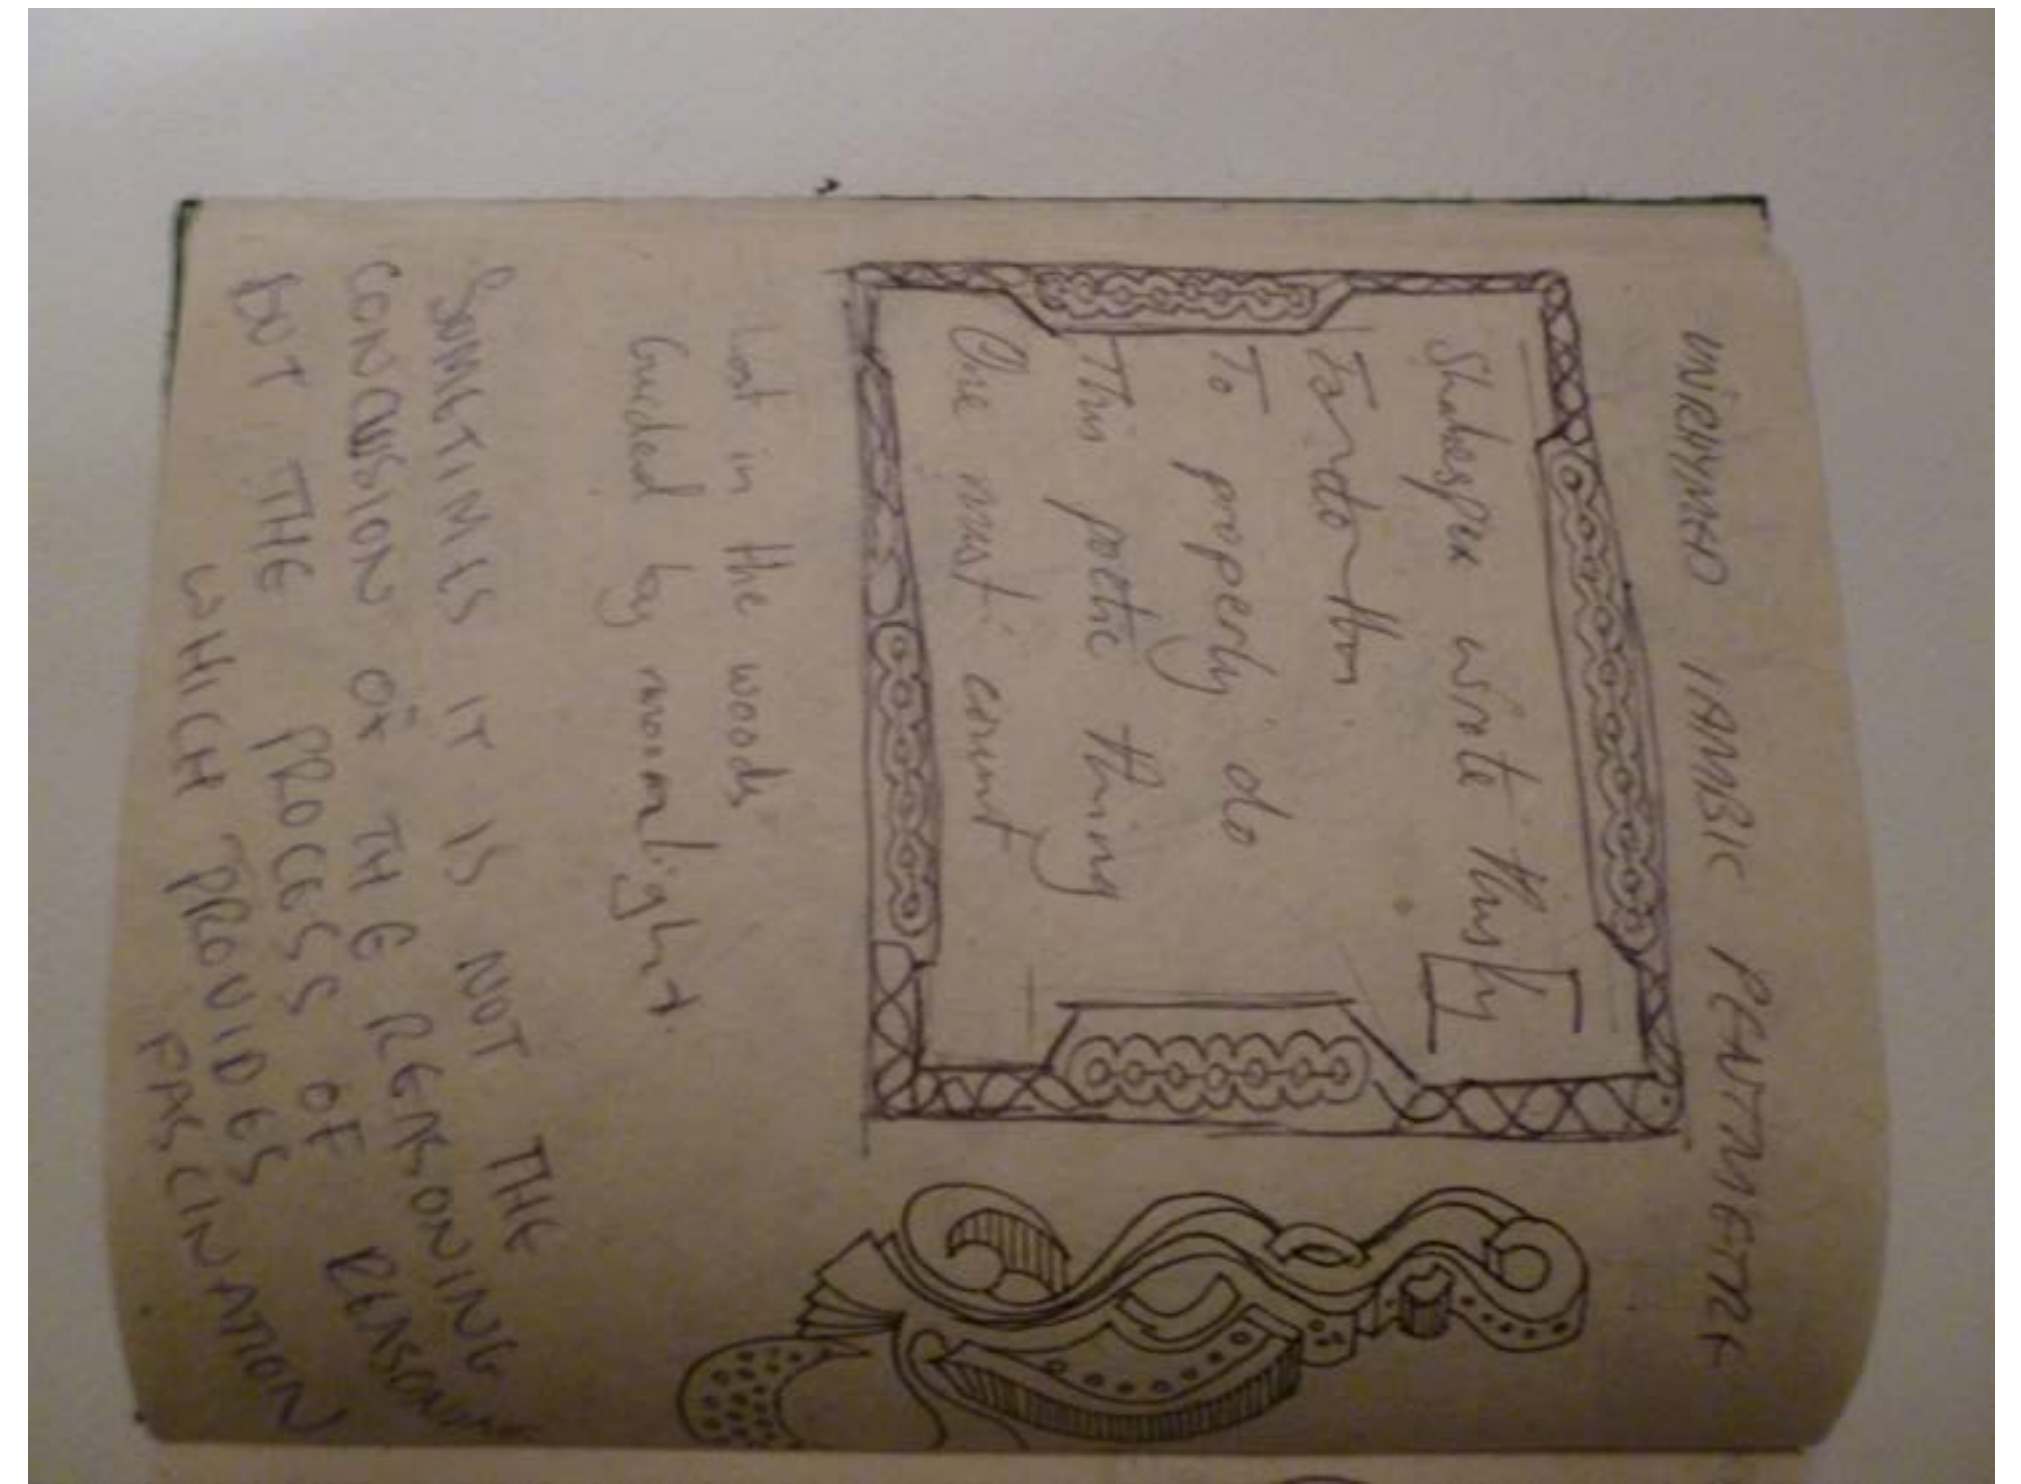 UNRHYMED IAMBIC PENTAMETRE
Shakespere wrote thisly
To do
To properly do
This poetic thing
One must count
Lost in the woods
Guided by moonlight.
SOMETIMES IT IS NOT THE
CONCLUSION OF THE REASONING
BUT THE PROCESS OF REASONING
WHICH PROVIDES
FASCINATION